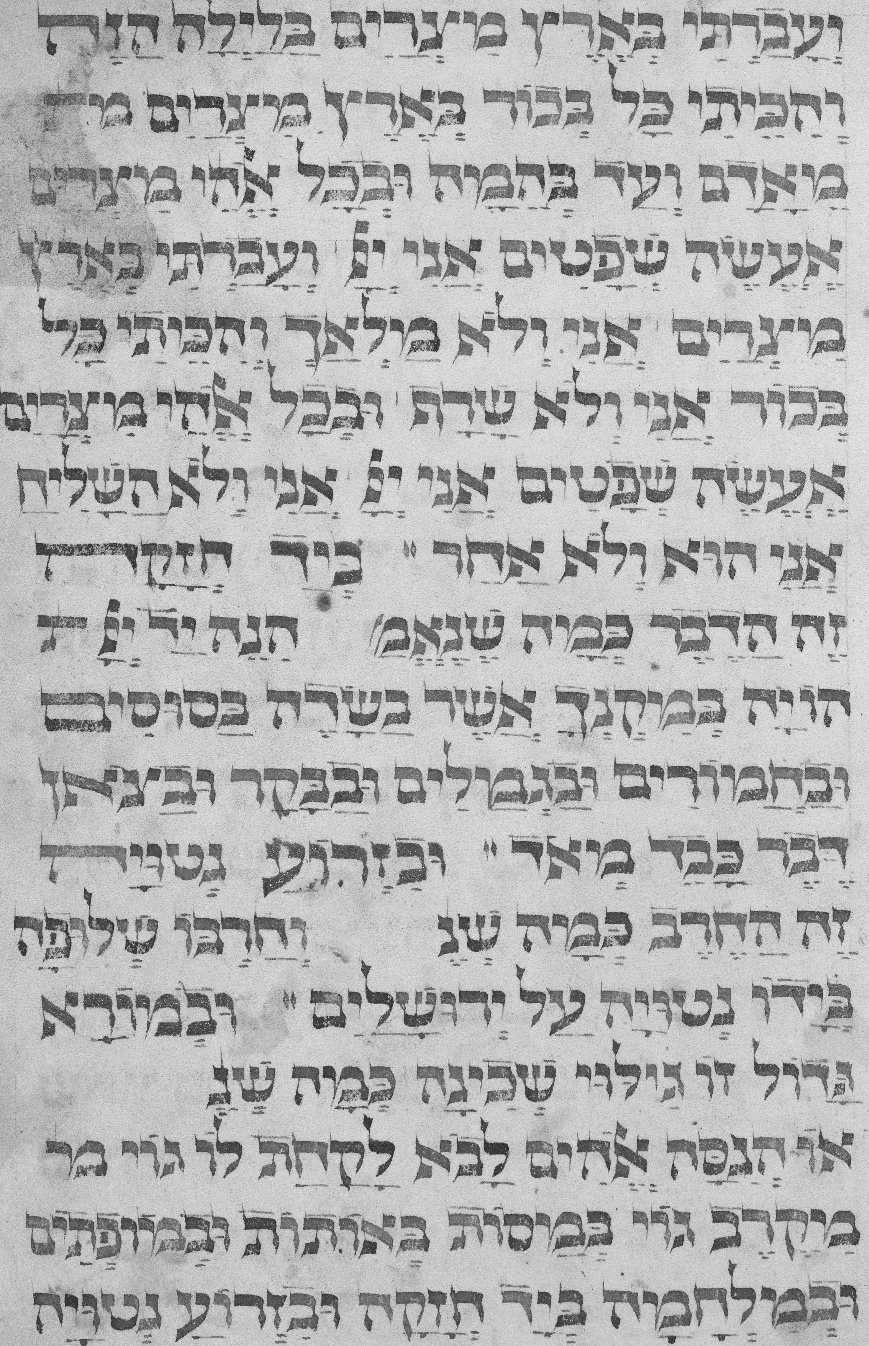 וְעָבַרְתִּי בְאֶרֶץ מִצְרַיִם בַּלַּיְלָה הַזֶּה
וְהִכֵּיתִי כָל בְּכוֹר בְּאֶרֶץ מִצְרַיִם מ
מֵאָדָם וְעַד בְּהֵמָה וּבְכָל אֱהֵי מִצְרַיִם
אֶעֱשֶׂה שְׁפָטִים אֲנִי יְיָ וְעָבַרְתִּי בְאֶרֶץ
מִצְרַיִם אֲנִי וְלֹא מַלְאָךְ וְהִכֵּיתִי כָל
בְּכוֹר אֲנִי וְלֹא שָׂרָף וּבְכָל אֱהֵי מִצְרַיִם
אֶעֱשֶׂה שְׁפָטִים אֲנִי יְיָ אֲנִי וְלֹא הַשָּׁלִיחַ
אֲנִי הוּא וְלֹא אַחֵר ׃ בְּיָד חֲזָקָה
זֶה הַדֶּבֶר כְּמָה שֶׁנֶּאֱמַ׳ הִנֵּה יַד יְיָ
הוֹיָה בְּמִקְנְךָ אֲשֶׁר בַּשָּׂדֶה בַּסּוּסִים
וּבַחֲמוֹרִים וּבַגְּמַלִּים וּבַבָּקָר וּבַצֹּאן
דֶּבֶר כָּבֵד מְאֹד ׃ וּבִזְרוֹעַ נְטוּיָה
זֶה הַחֶרֶב כְּמָה שֶׁנֶּ וְחַרְבּוֹ שְׁלוּפָה
בְּיָדוֹ נְטוּיָה עַל יְרוּשָׁלַיִם ׃ וּבְמוֹרָא
גָּדוֹל זוֹ גִּילּוּי שְׁכִינָה כְּמָה שֶׁנֶּ
אוֹ הֲנִסָּה אֱהִים לָבֹא לָקַחַת לוֹ גוֹי מ
מִקֶּרֶב גּוֹי בְּמַסּוֹת בְּאוֹתוֹת וּבְמוֹפְתִים
וּבְמִלְחָמָה בְּיָד חֲזָקָה וּבִזְרוֹעַ נְטוּיָה